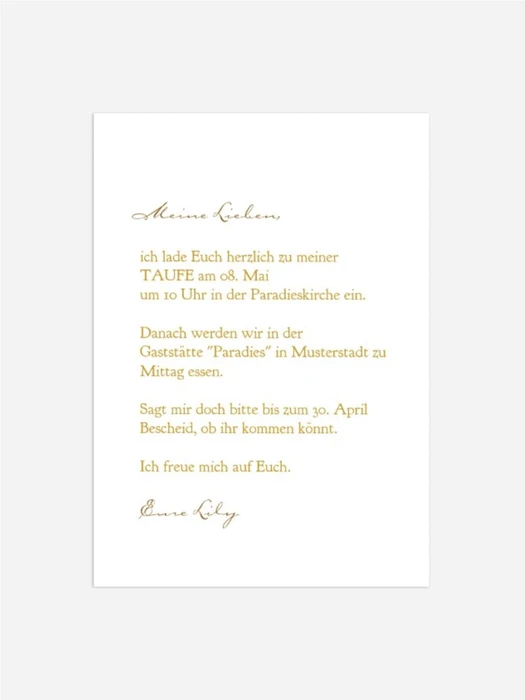 Meine Lieben,
ich lade Euch herzlich zu meiner
TAUFE am 08. Mai
um 10 Uhr in der Paradieskirche ein.
Danach werden wir in der
Gaststätte "Paradies" in Musterstadt zu
Mittag essen.
Sagt mir doch bitte bis zum 30. April
Bescheid, ob ihr kommen könnt.
Ich freue mich auf Euch.
Eure Lily